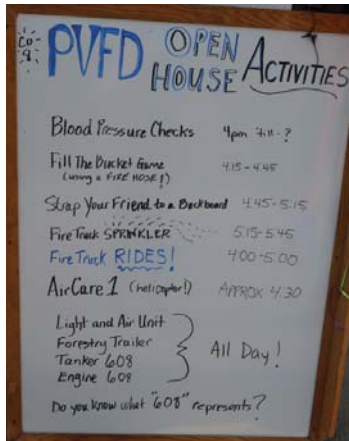 Co 8
PVFD OPEN HOUSE ACTIVITIES
Blood Pressure Checks 4pm till-?
Fill The Bucket Game 4:15-4:45
(using a FIRE HOSE!)
Strap Your Friend to a Backboard 4:45-5:15
Fire Truck SPRINKLER 5:15-5:45
Fire Truck RIDES! 4:00-5:00
AirCare 1 (helicopter!) APPROX 4:30
Light and Air Unit
Forestry Trailer
Tanker 608
Engine 608
All Day!
Do you know what "608" represents?